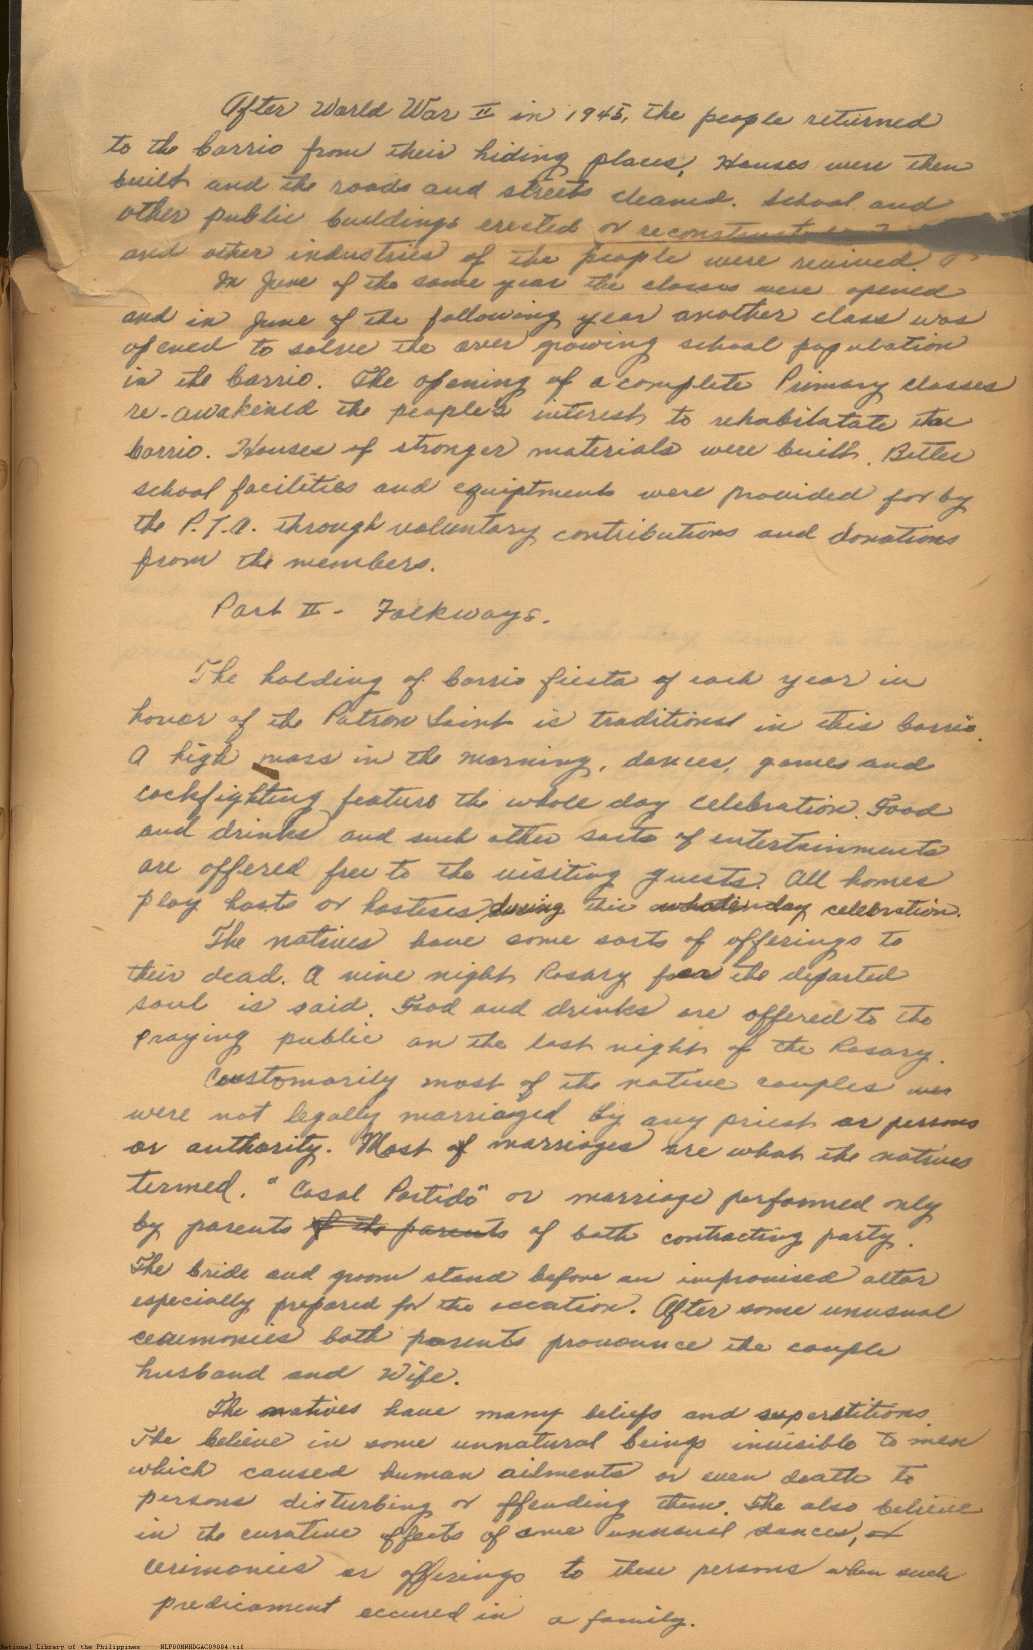 After World War II in 1945, the people returned
to the barrio from their hiding places. Houses were then
built and the roads and streets cleaned. School and
other public buildings erected or reconstructed
and other industries of the people were revived.
In June of the same year the classes were opened
and in June of the following year another class was
opened to solve the over growing school population
in the barrio. The opening of a complete Primary classes
re-awakened the people's interest to rehabilatate the
barrio. Houses of stronger materials were built. Better
school facilities and equiptments were provided for by
the P.T.A. through voluntary contributions and donations
from the members.
Part II - Folkways.
The holding of barrio fiesta of each year in
honor of the Patron Saint is traditional in this barrio.
A high mass in the morning, dances, games and
cockfighting feature the whole day celebration. Food
and drinks and such other sorts of entertainments
are offered free to the visiting guests. All homes
play hosts or hosteses during this whole day celebration.
The natives have some sorts of offerings to
their dead. A nine night Rosary for the departed
soul is said. Food and drinks are offered to the
praying public on the last night of the Rosary.
Customarily most of the native couples
were not legally marriaged by any priest or persons
or authority. Most of marriages are what the natives
termed. "Casal Partido" or marriage performed only
by parents of the parents of both contracting party.
The bride and groom stand before an improvised altar
especially prepared for the occation. After some unusual
ceremonies both parents pronounce the couple
husband and Wife.
The natives have many beliefs and superstitions.
The believe in some unnatural beings invisible to men
which caused human ailments or even death to
persons disturbing or offending them. The also believe
in the curative effects of some unusual dances, or
cerimonies or offerings to these persons when such
predicament occured in a family.
National Library of the Philippines NLP00NHHDGAC09084.tif